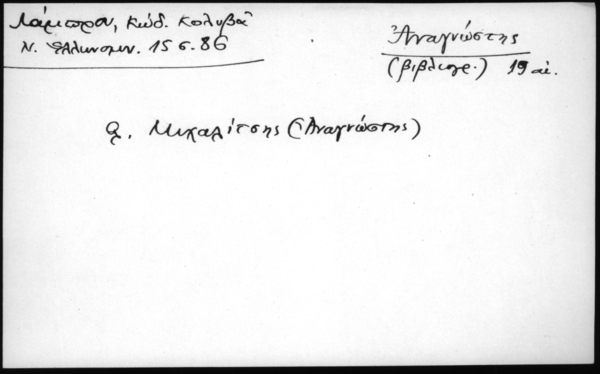 Λάμπρου, Κώδ. Κολυβᾶ
Ν. Ἑλληνομν. 15 σ. 86
Ἀναγνώστης
(βιβλιογρ.) 19 αἰ.
Μιχαλίτσης (Ἀναγνώστης)